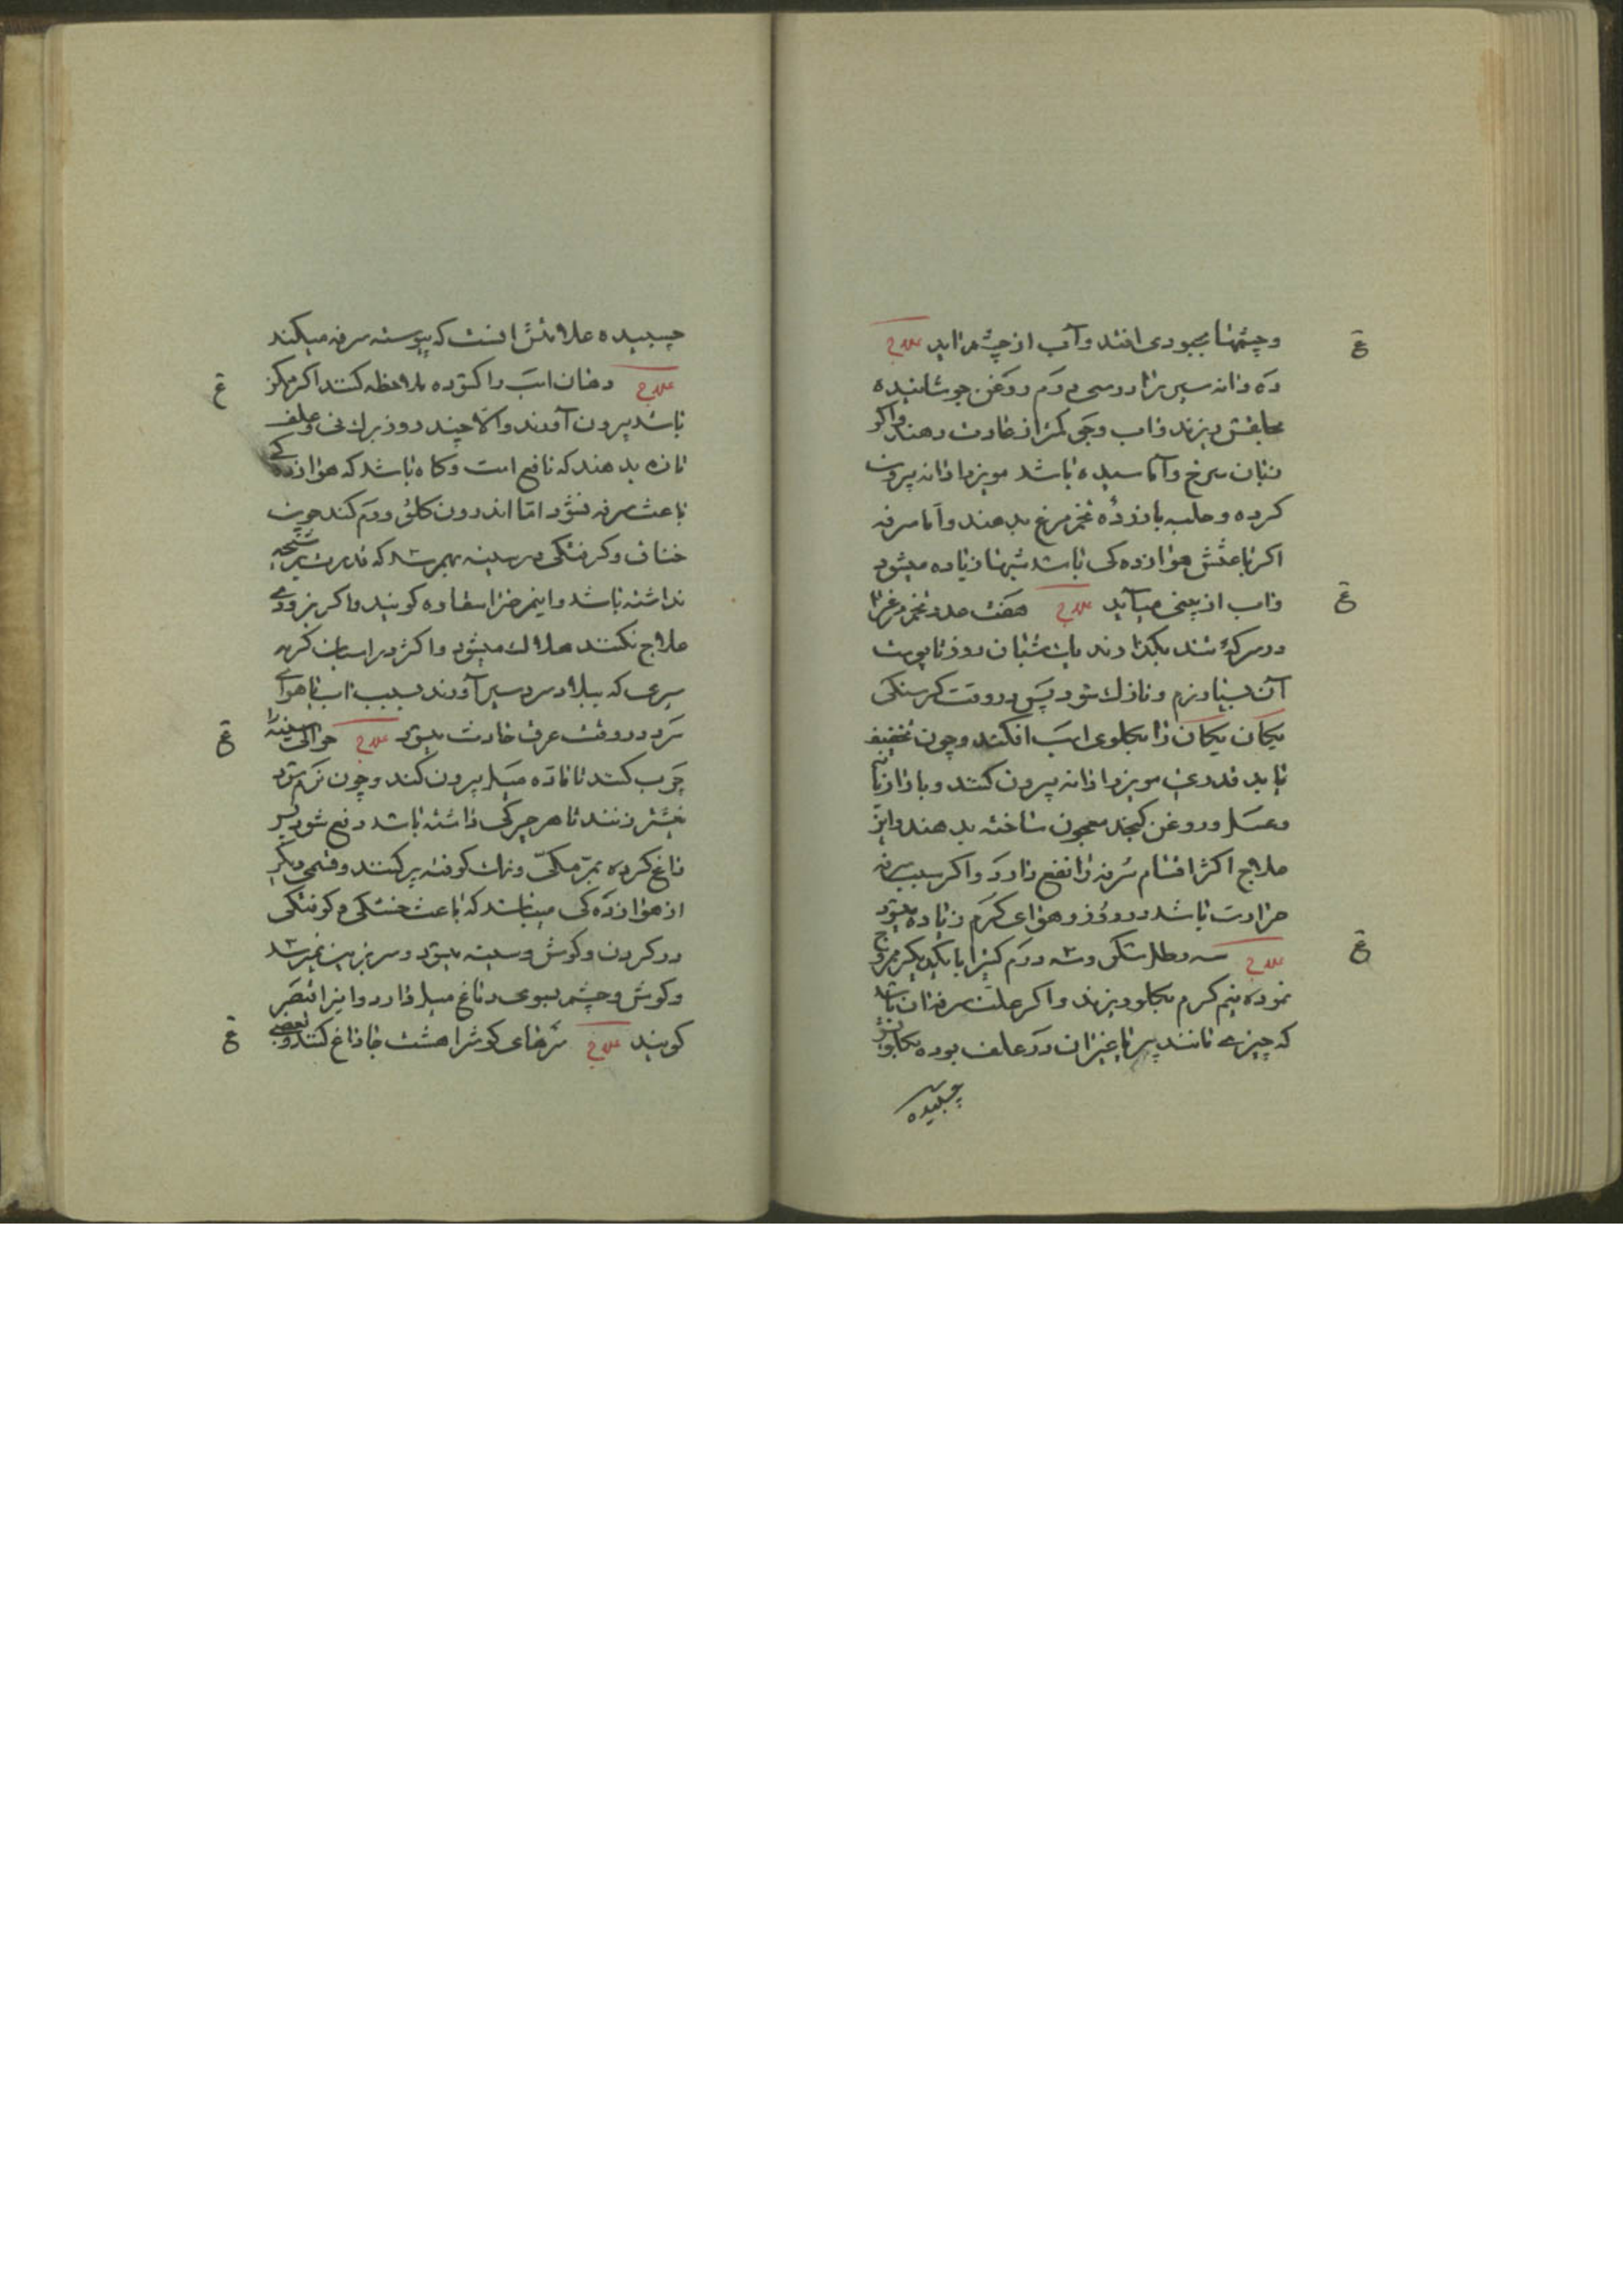 و چشمها بکبودی افتد و آب از چشم براید علاج
ده دانه سیر را در سی درم روغن جوشانیده
بحلقش ریزند و اب و جو کمتر از عادت دهند و اکر
زبان سرخ و آماسیده باشد مویز را دانه بیرون
کرده و حلبه با زردهٔ تخم مرغ بدهند و اما سرفه
اکر باعثش هوازده کی باشد شبها زیاده میشود
و اب از بینی میآید علاج هفت عدد تخم مرغ را
در سرکهٔ تند بکذارند یک شبان روز تا پوست
آن بسیار نرم و نازک شود پس در وقت کرسنکی
یکان یکان را بکلوی اسب افکنند و چون تخفیف
یابد قدری مویز را دانه بیرون کنند و با رازیانه
و عسل و روغن کنجد معجون ساخته بدهند و این
علاج اکثر اقسام سرفه را نفع دارد و اکر سبب سرفه
حرارت باشد در روز و هوای کرم زیاده میشود
علاج سه رطل شکر و سه درم کتیرا با یکدیکر ممزوج
نموده نیم کرم بکلو ریزند و اکر علت سرفه ان باشد
که چیزی مانند پر یا غیر ان در علف بوده بکلویش
چسبیده
چسبیده علامتش انست که پیوسته سرفه میکند
علاج دهان اسب را کشوده ملاحظه کنند اکر ممکن
باشد بیرون آورند و الا چند روز برک نی و علف
تازه بدهند که نافع است و کاه باشد که هوازده کی
باعث سرفه نشود اما اندرون کلو ورم کند چون
خناق و کرفتکی در سینه بهم رسد که قدرت بر شیهه
نداشته باشد و اینمرض را سقاوه کویند و اکر بزودی
علاج نکنند هلاک میشود و اکثر در اسبان کرم
سیری که ببلاد سرد سیر آورند بسبب اب یا هوای
سرد در وقت عرق حادث میشود علاج حوالی سینه را
چرب کنند تا ماده میل بیرون کند و چون نرم شود
نیشتر زنند تا هر چرکی داشته باشد دفع شود پس
داغ کرده بمر مکی و نمک کوفته پر کنند و قسمی دیکر
از هوازده کی میباشد که باعث خشکی و کوفتکی
در کردن و کوش و سینه میشود و سر بزمین نمیرسد
و کوش و چشم بسوی دماغ میل دارد و اینرا قصر
کویند علاج سرهای کوش را هشت جا داغ کنند و بعضی